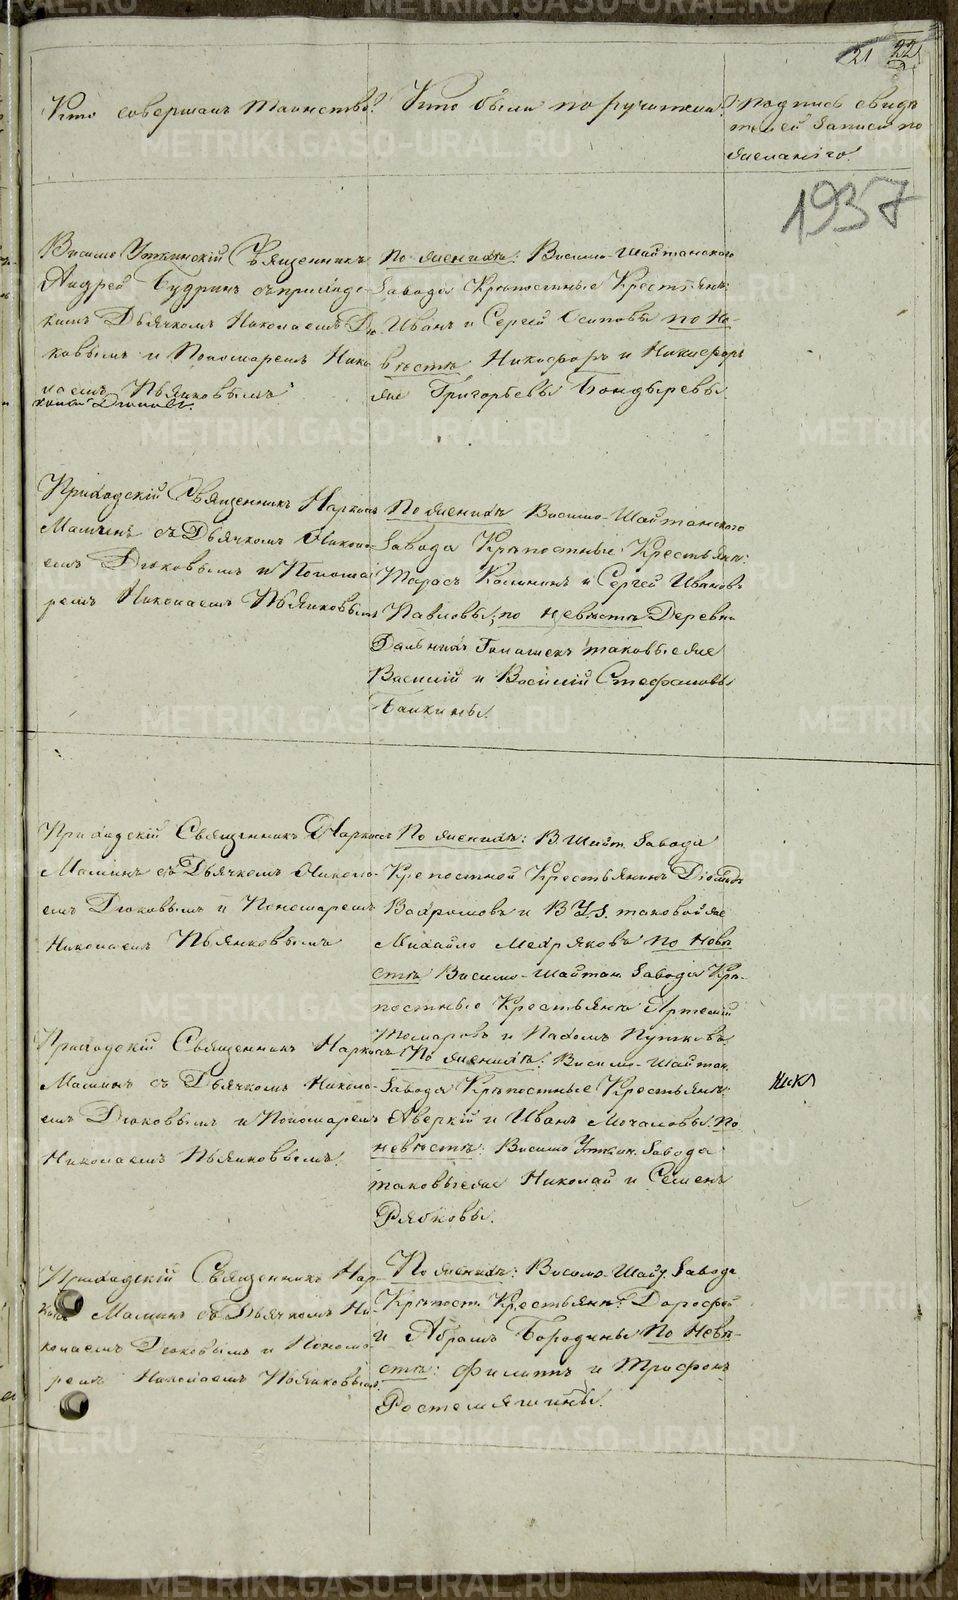 21 22
Кто совершалъ таинство?
Кто были поручители?
Подпись свидѣ
телей записи по
желанію.
1937
Висимо Уткинскій Священникъ
Андрей Будринъ съ приход-
скимъ Дьячкомъ Николаемъ Дю
ковымъ и Пономаремъ Нико
лаемъ Пьянковымъ
По женихѣ: Висимо-Шайтанского
Завода Крѣпостные Крестьяне:
Иванъ и Сергей Осиповы по не-
вѣстѣ Никифоръ и Никифоръ
же Григорьевы Бондыревы
Приходскій Священникъ Наркисъ
Маминъ съ Дьячкомъ Никола-
емъ Дюковымъ и Понома
ремъ Николаемъ Пьянковымъ
По женихѣ Висимо-Шайтанского
Завода Крѣпостные Крестьяне:
Тарасъ Калининъ и Сергей Ивановъ
Павловы, по невѣстѣ Деревни
Дальнихъ Галашекъ таковые же
Василій и Василій Стефановы
Балкины.
Приходскій Священникъ Наркисъ
Маминъ съ Дьячкомъ Никола-
емъ Дюковымъ и Пономаремъ
Николаемъ Пьянковымъ
По женихѣ: В. Шайт. Завода
Крепостной Крестьянинъ Діомидъ
Вахромовъ и В. У. З. таковой же
Михайло Мехряковъ по невѣ
стѣ Висимо-Шайтан. Завода Крѣ-
постные Крестьяне Артемій
и Пахомъ Путковъ
Приходскій Священникъ Наркисъ
Маминъ съ Дьячкомъ Никола-
емъ Дюковымъ и Пономаремъ
Николаемъ Пьянковымъ.
По женихѣ: Висимо-Шайтан.
Завода Крѣпостные Крестьяне:
Аверкій и Иванъ Мочаловы. По
невѣстѣ: Висимо Уткин. Завода
таковые же Николай и Семенъ
Рябковы.
Приходскій Священникъ Нар-
Маминъ съ Дьячкомъ Ни-
колаемъ Дюковымъ и Понома-
ремъ Николаемъ Пьянковымъ.
По женихѣ: Висимо-Шайт. Завода
Крѣпост. Крестьяне: Дорофей
и Абрамъ Бородины По невѣ-
стѣ: Филиппъ и Трифонъ
METRIKI.GASO-URAL.RU